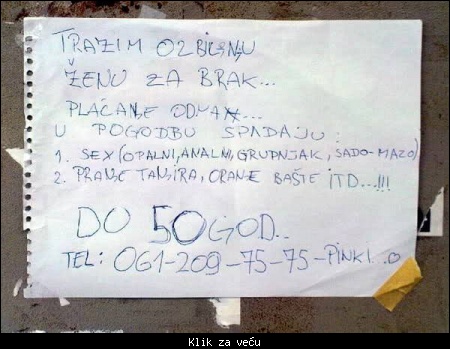 TRAŽIM OZBILJNU
ŽENU ZA BRAK...
PLAĆANJE ODMAH...
U POGODBU SPADAJU:
1. SEX (OPALNI, ANALNI, GRUDNJAK, SADO-MAZO)
2. PRANJE TANJIRA, ORANJE BAŠTE ITD...!!!
DO 50 GOD..
TEL: 061-209-75-75-PINKI..O
Klik za veču